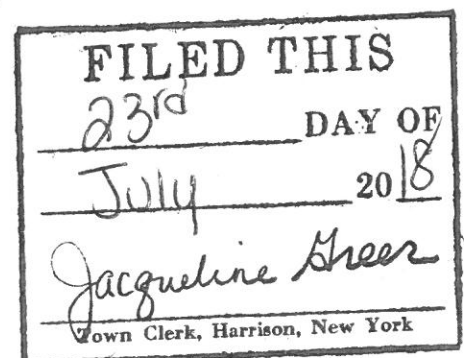 FILED THIS
23rd DAY OF
July 2018
Jacqueline Greer
Town Clerk, Harrison, New York